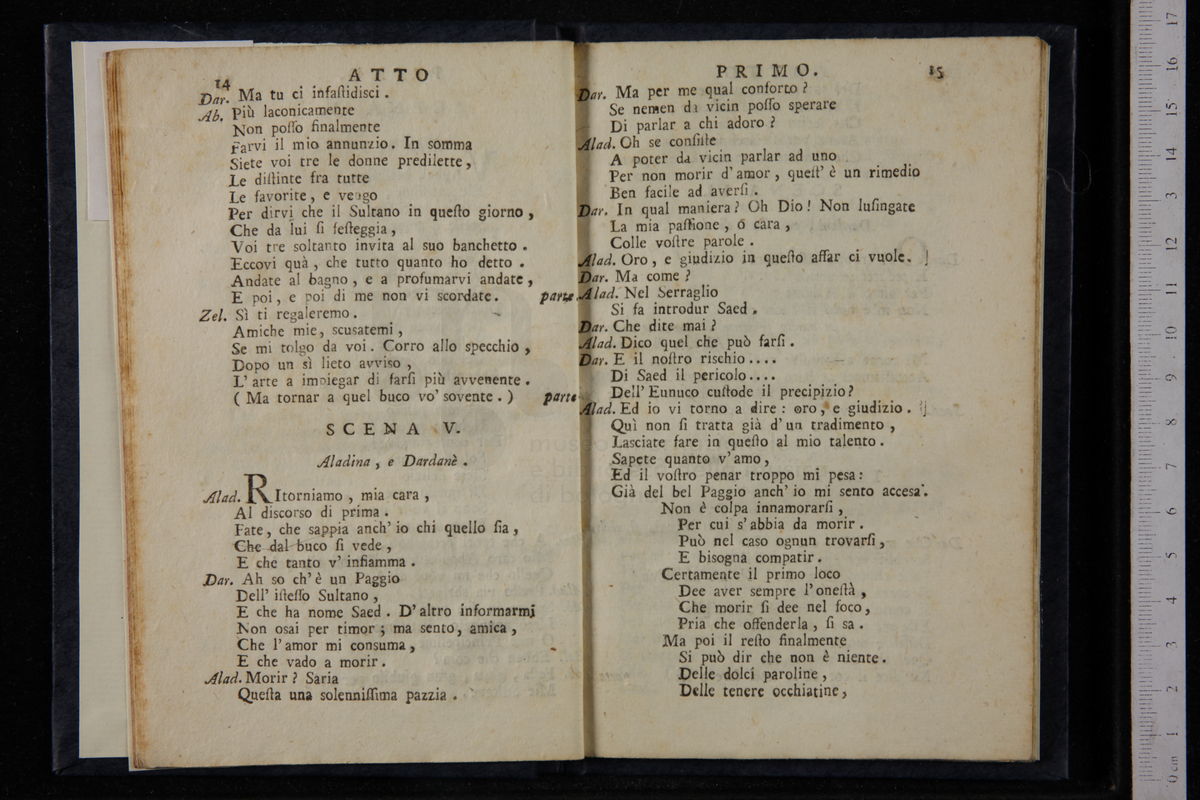 14
ATTO
Dar. Ma tu ci infaſtidisci.
Ab. Più laconicamente
Non poſſo finalmente
Farvi il mio annunzio. In somma
Siete voi tre le donne predilette,
Le diſtinte fra tutte
Le favorite, e vengo
Per dirvi che il Sultano in queſto giorno,
Che da lui ſi feſteggia,
Voi tre soltanto invita al suo banchetto.
Eccovi quà, che tutto quanto ho detto.
Andate al bagno, e a profumarvi andate,
E poi, e poi di me non vi scordate. parte.
Zel. Sì ti regaleremo.
Amiche mie, scusatemi,
Se mi tolgo da voi. Corro allo specchio,
Dopo un sì lieto avviso,
L'arte a impiegar di farſi più avvenente.
(Ma tornar a quel buco vo' sovente.) parte
SCENA V.
Aladina, e Dardanè.
Alad. RItorniamo, mia cara,
Al discorso di prima.
Fate, che sappia anch'io chi quello ſia,
Che dal buco ſi vede,
E che tanto v'infiamma.
Dar. Ah so ch'è un Paggio
Dell'iſteſſo Sultano,
E che ha nome Saed. D'altro informarmi
Non osai per timor; ma sento, amica,
Che l'amor mi consuma,
E che vado a morir.
Alad. Morir? Saria
Queſta una solenniſſima pazzia.
PRIMO.
15
Dar. Ma per me qual conforto?
Se nemen da vicin poſſo sperare
Di parlar a chi adoro?
Alad. Oh se conſiſte
A poter da vicin parlar ad uno
Per non morir d'amor, queſt'è un rimedio
Ben facile ad averſi.
Dar. In qual maniera? Oh Dio! Non luſingate
La mia paſſione, ó cara,
Colle voſtre parole.
Alad. Oro, e giudizio in queſto affar ci vuole.
Dar. Ma come?
Alad. Nel Serraglio
Si fa introdur Saed.
Dar. Che dite mai?
Alad. Dico quel che può farſi.
Dar. E il noſtro rischio....
Di Saed il pericolo....
Dell'Eunuco cuſtode il precipizio?
Alad. Ed io vi torno a dire: oro, e giudizio.
Quì non ſi tratta già d'un tradimento,
Lasciate fare in queſto al mio talento.
Sapete quanto v'amo,
Ed il voſtro penar troppo mi pesa:
Già del bel Paggio anch'io mi sento accesa.
Non è colpa innamorarſi,
Per cui s'abbia da morir.
Può nel caso ognun trovarſi,
E bisogna compatir.
Certamente il primo loco
Dee aver sempre l'oneſtà,
Che morir ſi dee nel foco,
Pria che offenderla, ſi sa.
Ma poi il reſto finalmente
Si può dir che non è niente.
Delle dolci paroline,
Delle tenere occhiatine,